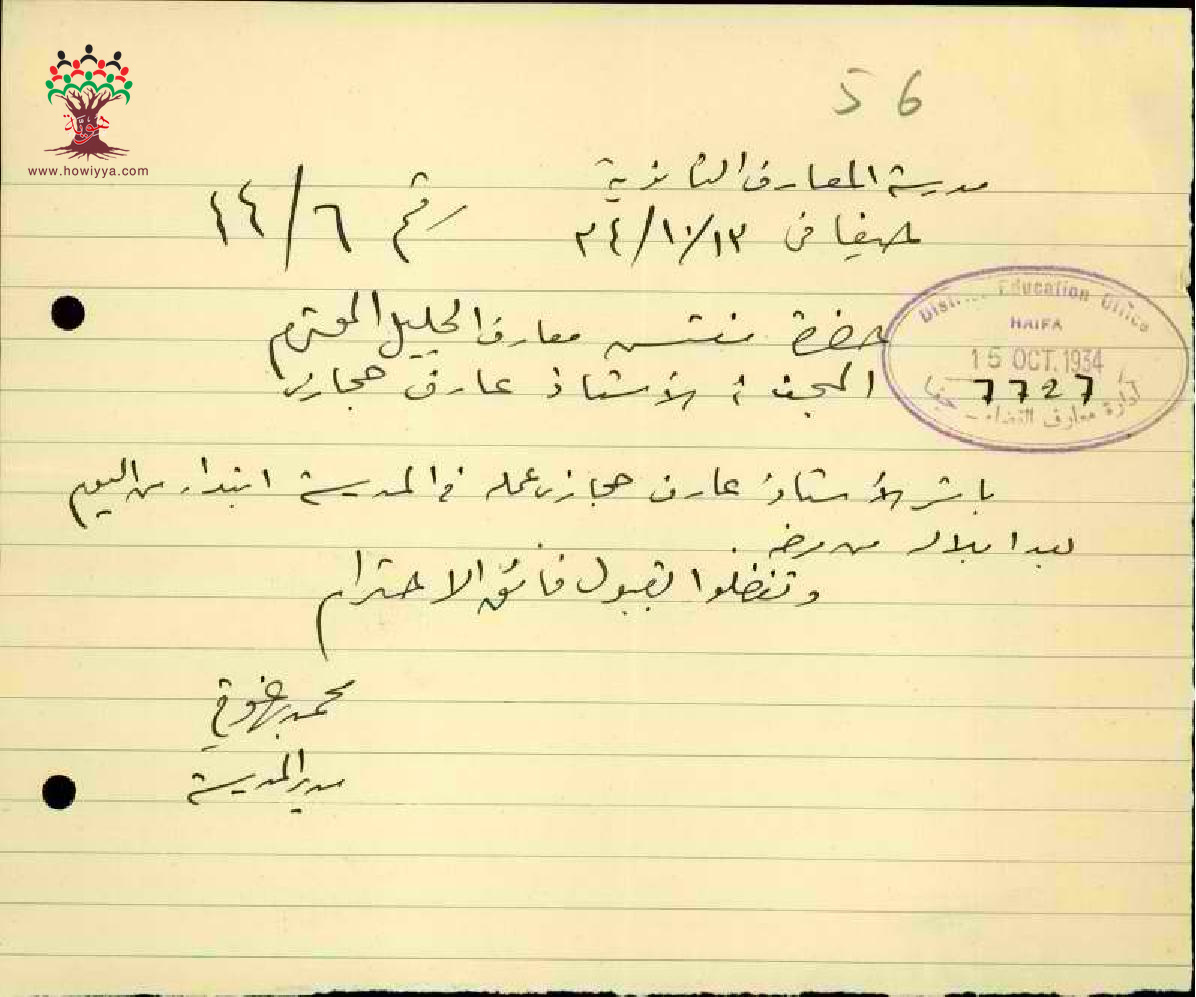 هوية
www.howiyya.com
56
مدرسة المعارف الثانوية
حيفا في ١٣/١٠/٣٤ رقم ٦/٢٤
District Education Office
HAIFA
15 OCT. 1934
7727
إدارة معارف القضاء - حيفا
حضرة مفتش معارف الجليل المحترم
المبحث : الأستاذ عارف حجازي
باشر الأستاذ عارف حجازي عمله في المدرسة ابتداء من اليوم
بعد ابلاله من مرضه .
وتفضلوا بقبول فائق الاحترام
محمد
مدير المدرسة